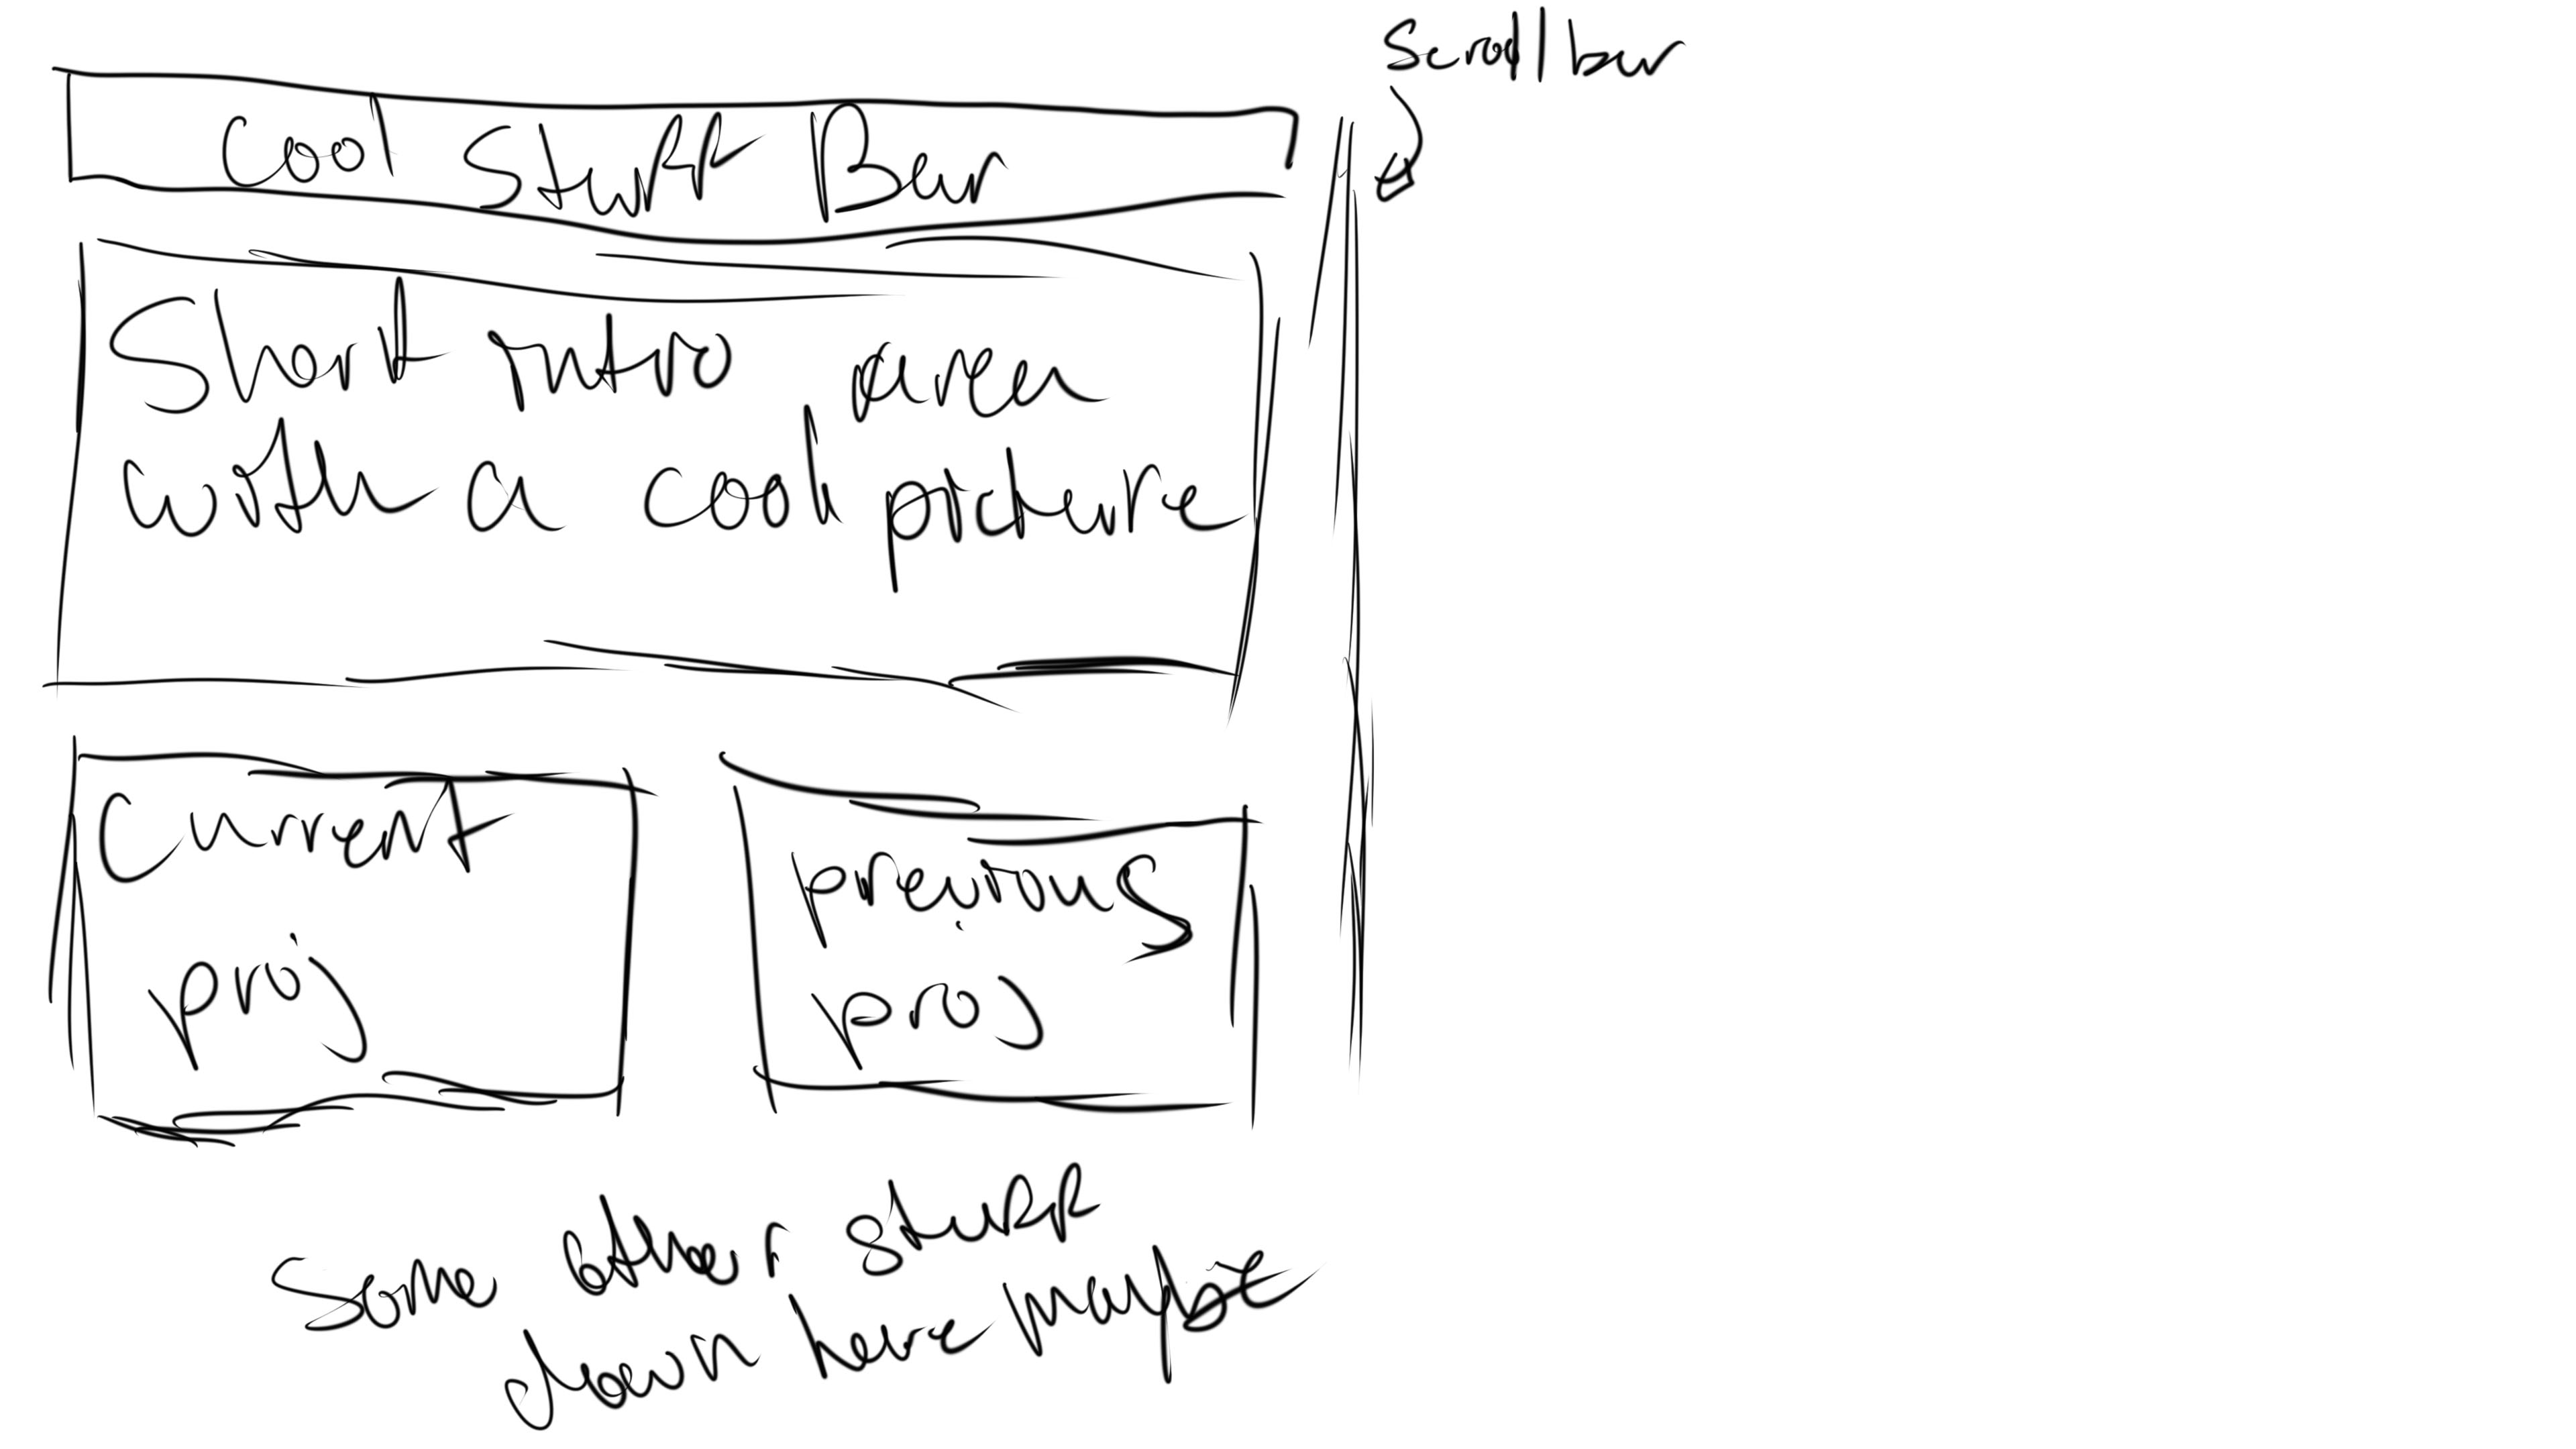 Scroll bar
Cool Stuff Bar
Short intro area
with a cool picture
Current
proj
previous
proj
Some other stuff
down here maybe